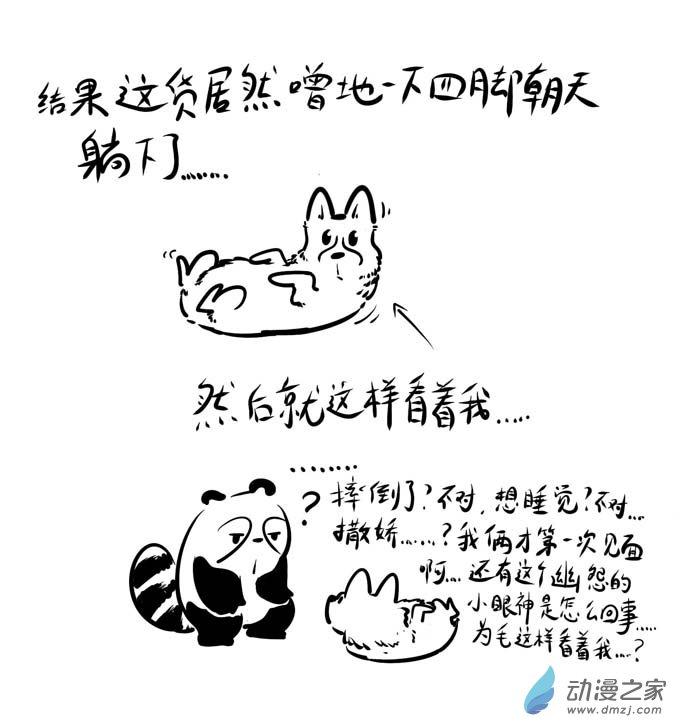 结果这货居然噌地一下四脚朝天
躺下了......
然后就这样看着我.....
........
?
摔倒了?不对,想睡觉?不对...
撒娇......?我俩才第一次见面
啊....还有这个幽怨的
小眼神是怎么回事.....
为毛这样看着我....?
动漫之家
www.dmzj.com